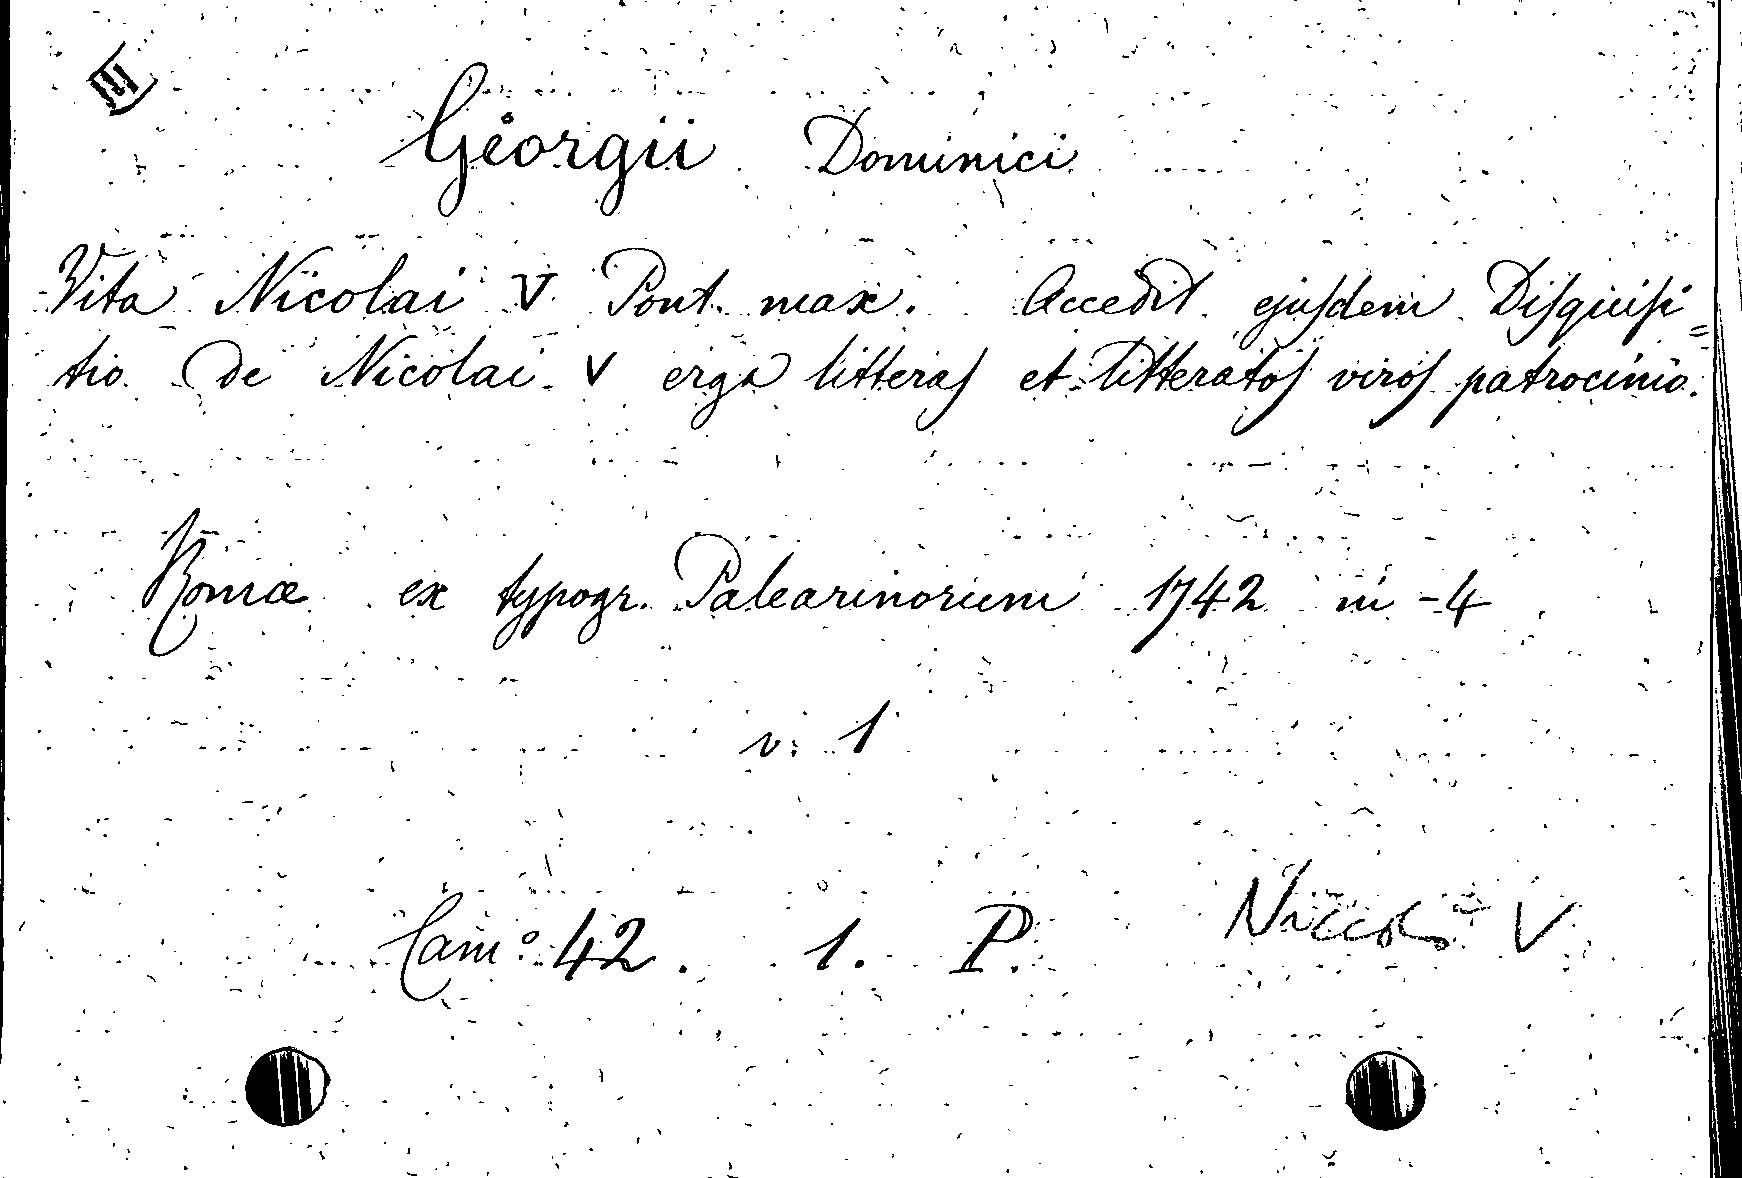 Georgii Dominici
Vita Nicolai V Pont. max. Accedit ejusdem Disquisi=
tio de Nicolai V erga litteras et litteratos viros patrocinio.
Romæ ex typogr. Palearinorum 1742 in -4
v. 1
Cam: 42. 1. P. Niccolò V